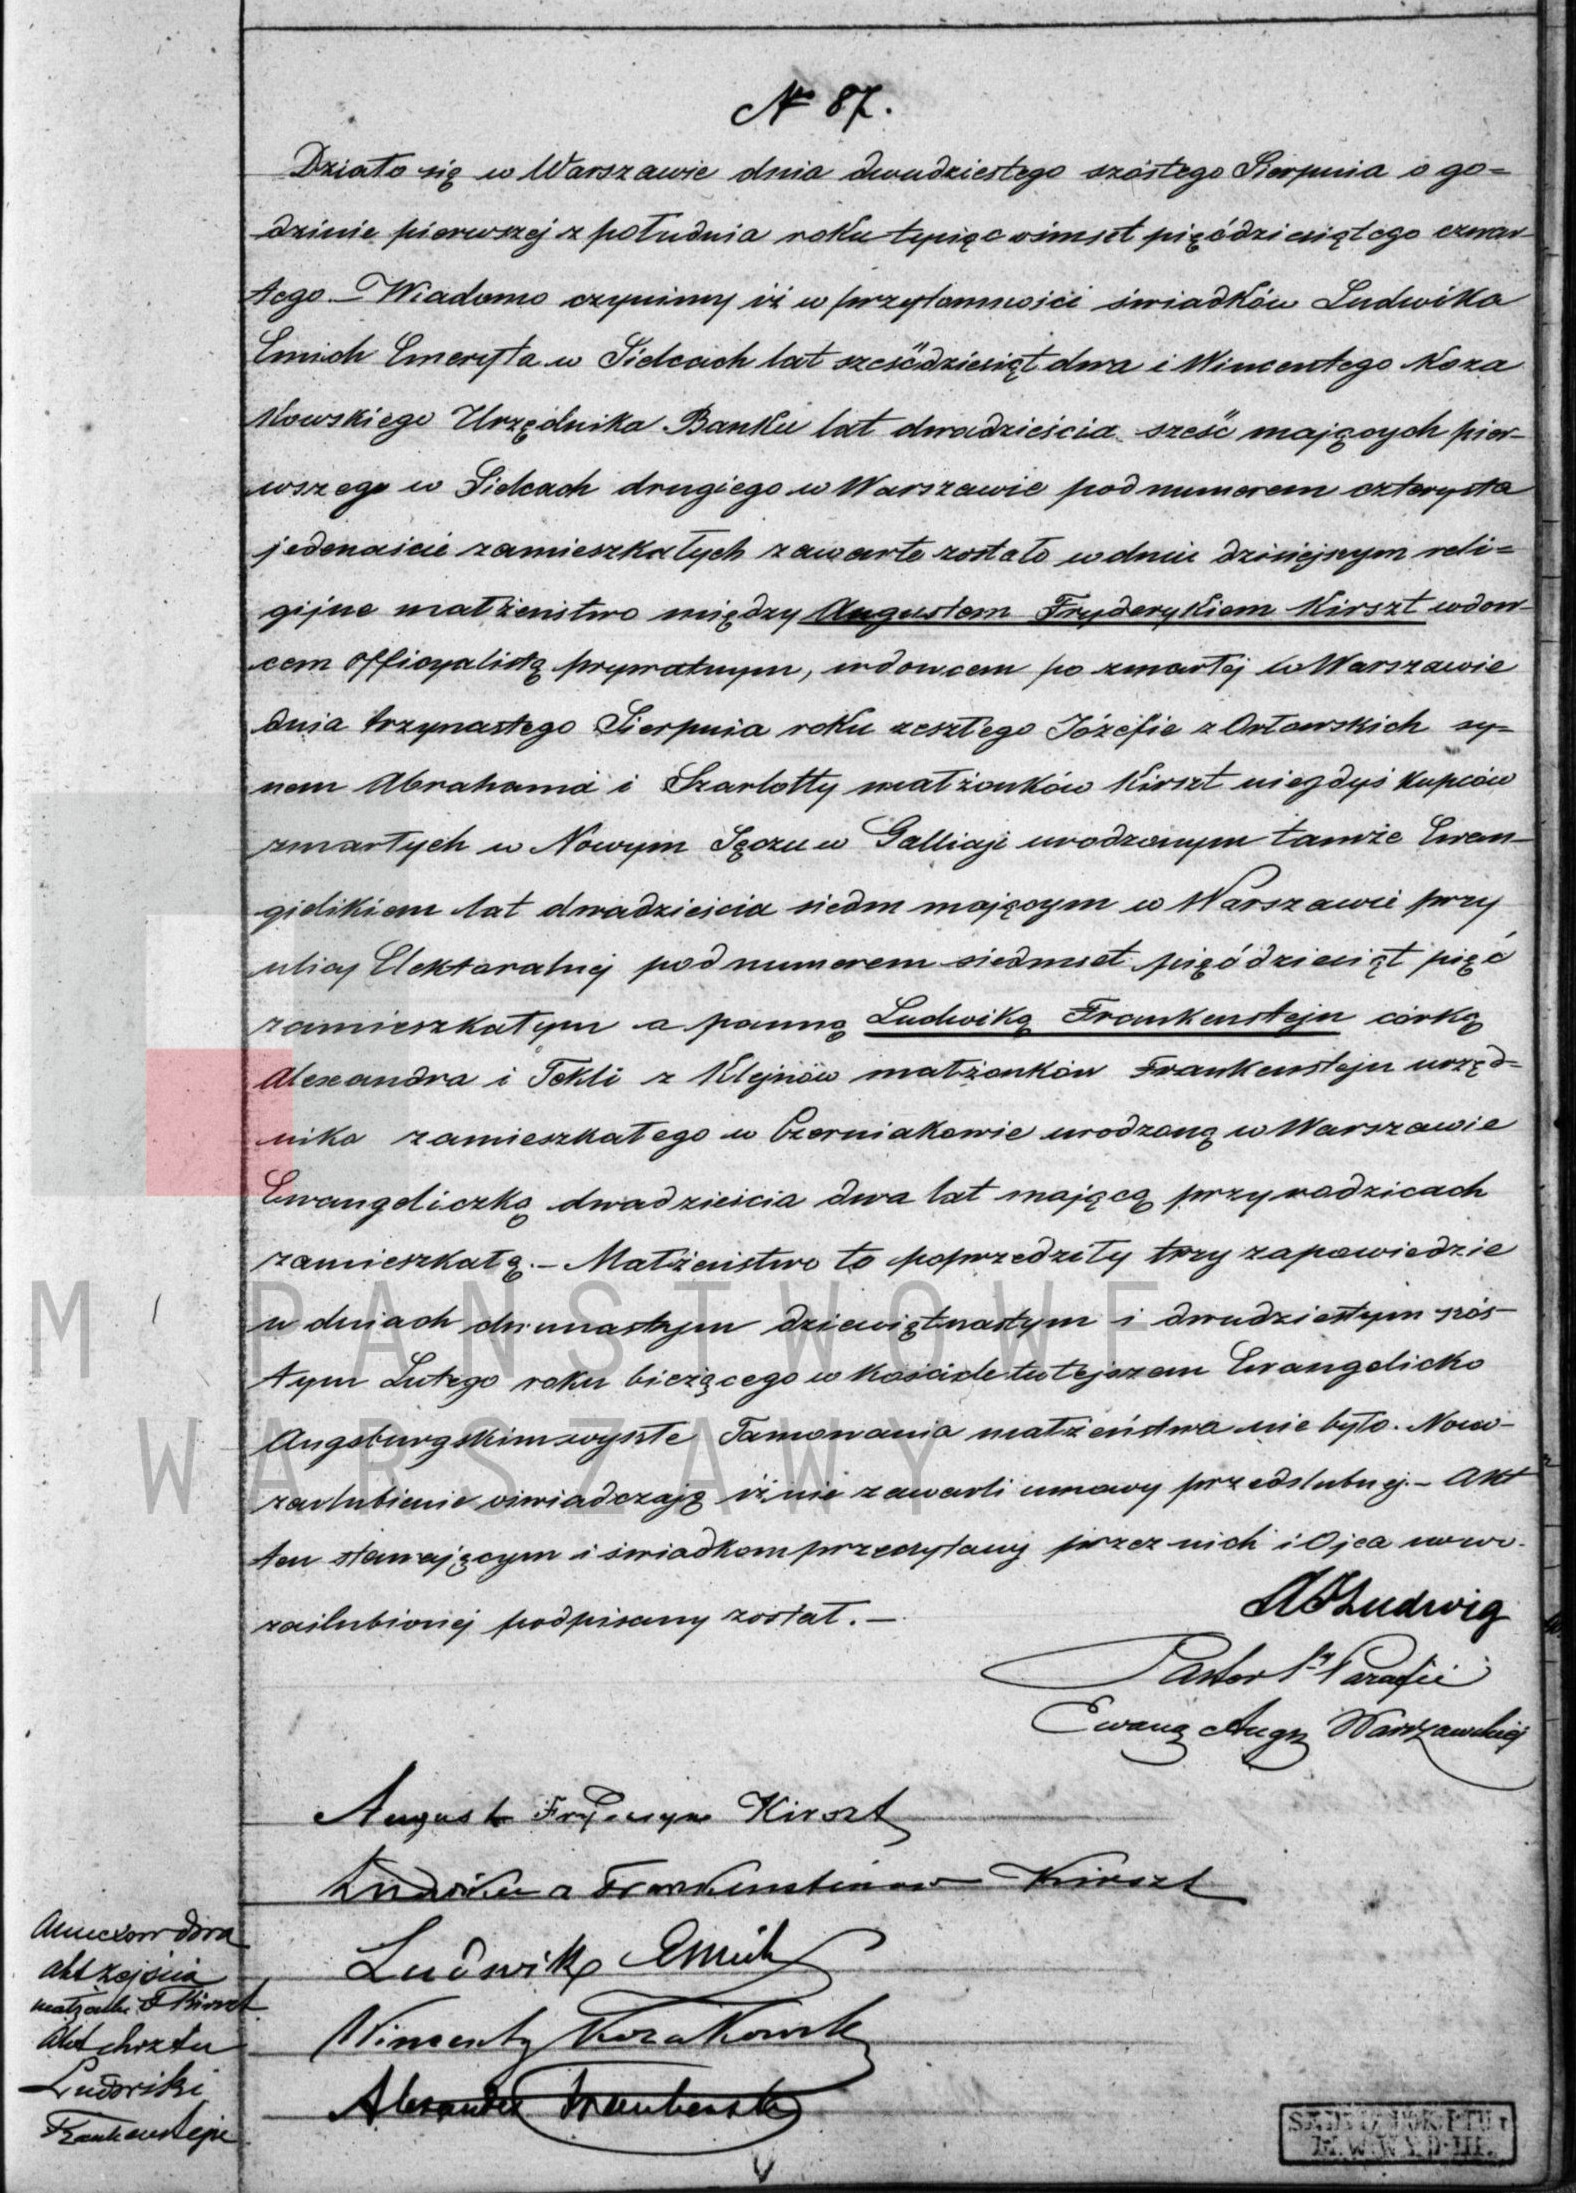 № 87.
Działo się w Warszawie dnia dwudziestego szóstego Sierpnia o go=
dzinie pierwszej z południa roku tysiąc ośmset pięćdziesiątego czwar-
tego. – Wiadomo czynimy iż w przytomności świadków Ludwika
Emich Emeryta w Sielcach lat sześćdziesiąt dwa i Wincentego Koza
kowskiego Urzędnika Banku lat dwadzieścia sześć mających pier-
wszego w Sielcach drugiego w Warszawie pod numerem czterysta
jedenaście zamieszkałych zawarte zostało w dniu dzisiejszym reli=
gijne małżeństwo między Augustem Fryderykiem Kirszt wdow-
cem officyalistą prywatnym, wdowcem po zmarłej w Warszawie
dnia trzynastego Sierpnia roku zeszłego Józefie z Orłowskich sy=
nem Abrahama i Szarlotty małżonków Kirszt niegdyś kupców
zmarłych w Nowym Sączu w Galicji urodzonym tamże Ewan-
gielikiem lat dwadzieścia siedm mającym w Warszawie przy
ulicy Elektoralnej pod numerem siedmset pięćdziesiąt pięć
zamieszkałym a panną Ludwiką Frankensztejn córką
Alexandra i Tekli z Klejnów małżonków Frankensztejn urzęd=
nika zamieszkałego w Czerniakowie urodzoną w Warszawie
Ewangeliczką dwadzieścia dwa lat mającą przy rodzicach
zamieszkałą. – Małżeństwo to poprzedziły trzy zapowiedzie
w dniach dwunastym dziewiętnastym i dwudziestym szós-
tym Lutego roku bieżącego w kościele tutejszem Ewangelicko
Augsburgskim wyszłe Tamowania małżeństwa nie było. Nowo-
zaślubienie oświadczają iż nie zawarli umowy przedślubnej. – Akt
ten stawającym i świadkom przeczytany przez nich i Ojca nowo-
zaślubionej podpisany został. –
Ludwig
Pastor Parafii
Ewang Augs Warszawskiej
August Fryderyk Kirszt
Ludwika Kirszt
Ludwik Emich
Wincenty Kozakowski
Alexander
akt zejścia
małżonki F Kirszt
akt chrztu
Ludwiki
Frankensztejn
M PAŃSTWOWE
WARSZAWY